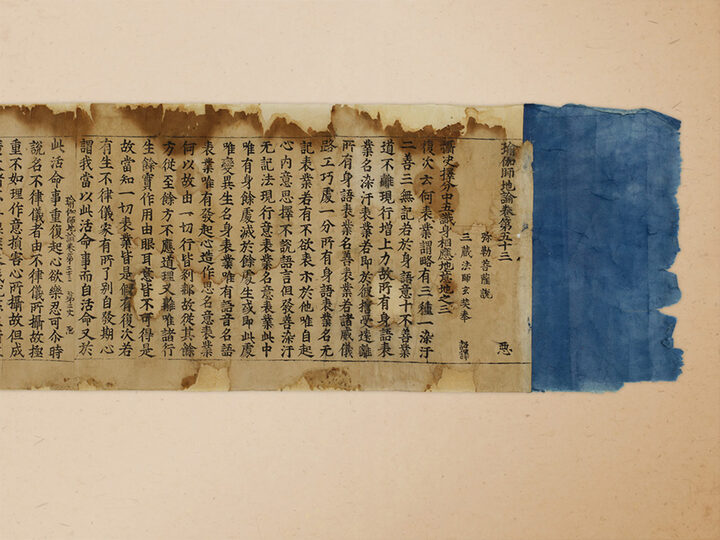 瑜伽師地論卷第五十三 惡
弥勒菩薩說
三藏法師玄奘奉 詔譯
攝決擇分中五識身相應地意地之三
復次云何表業謂略有三種一染汙
二善三無記若於身語意十不善業
道不離現行增上力故所有身語表
業名染汙表業若即於彼誓受遠離
所有身語表業名善表業若諸威儀
路工巧處一分所有身語表業名无
記表業若有不欲表示於他唯自起
心內意思擇不說語言但發善染汙
无記法現行意表業名意表業此中
唯有身餘處滅於餘處生或即此處
唯變異生名身表業唯有語音名語
表業唯有發起心造作思名意表業
何以故由一切行皆刹那故從其餘
方從至餘方不應道理又離唯諸行
生餘實作用由眼耳意皆不可得是
故當知一切表業皆是假有復次若
有生不律儀家有所了別自發期心
謂我當以此活命事而自活命又於
瑜伽師地論卷第五十三 第二丈 惡
此活命事重復起心欲樂忍可尒時
說名不律儀者由不律儀所攝故極
重不如理作意損害心所攝故但成